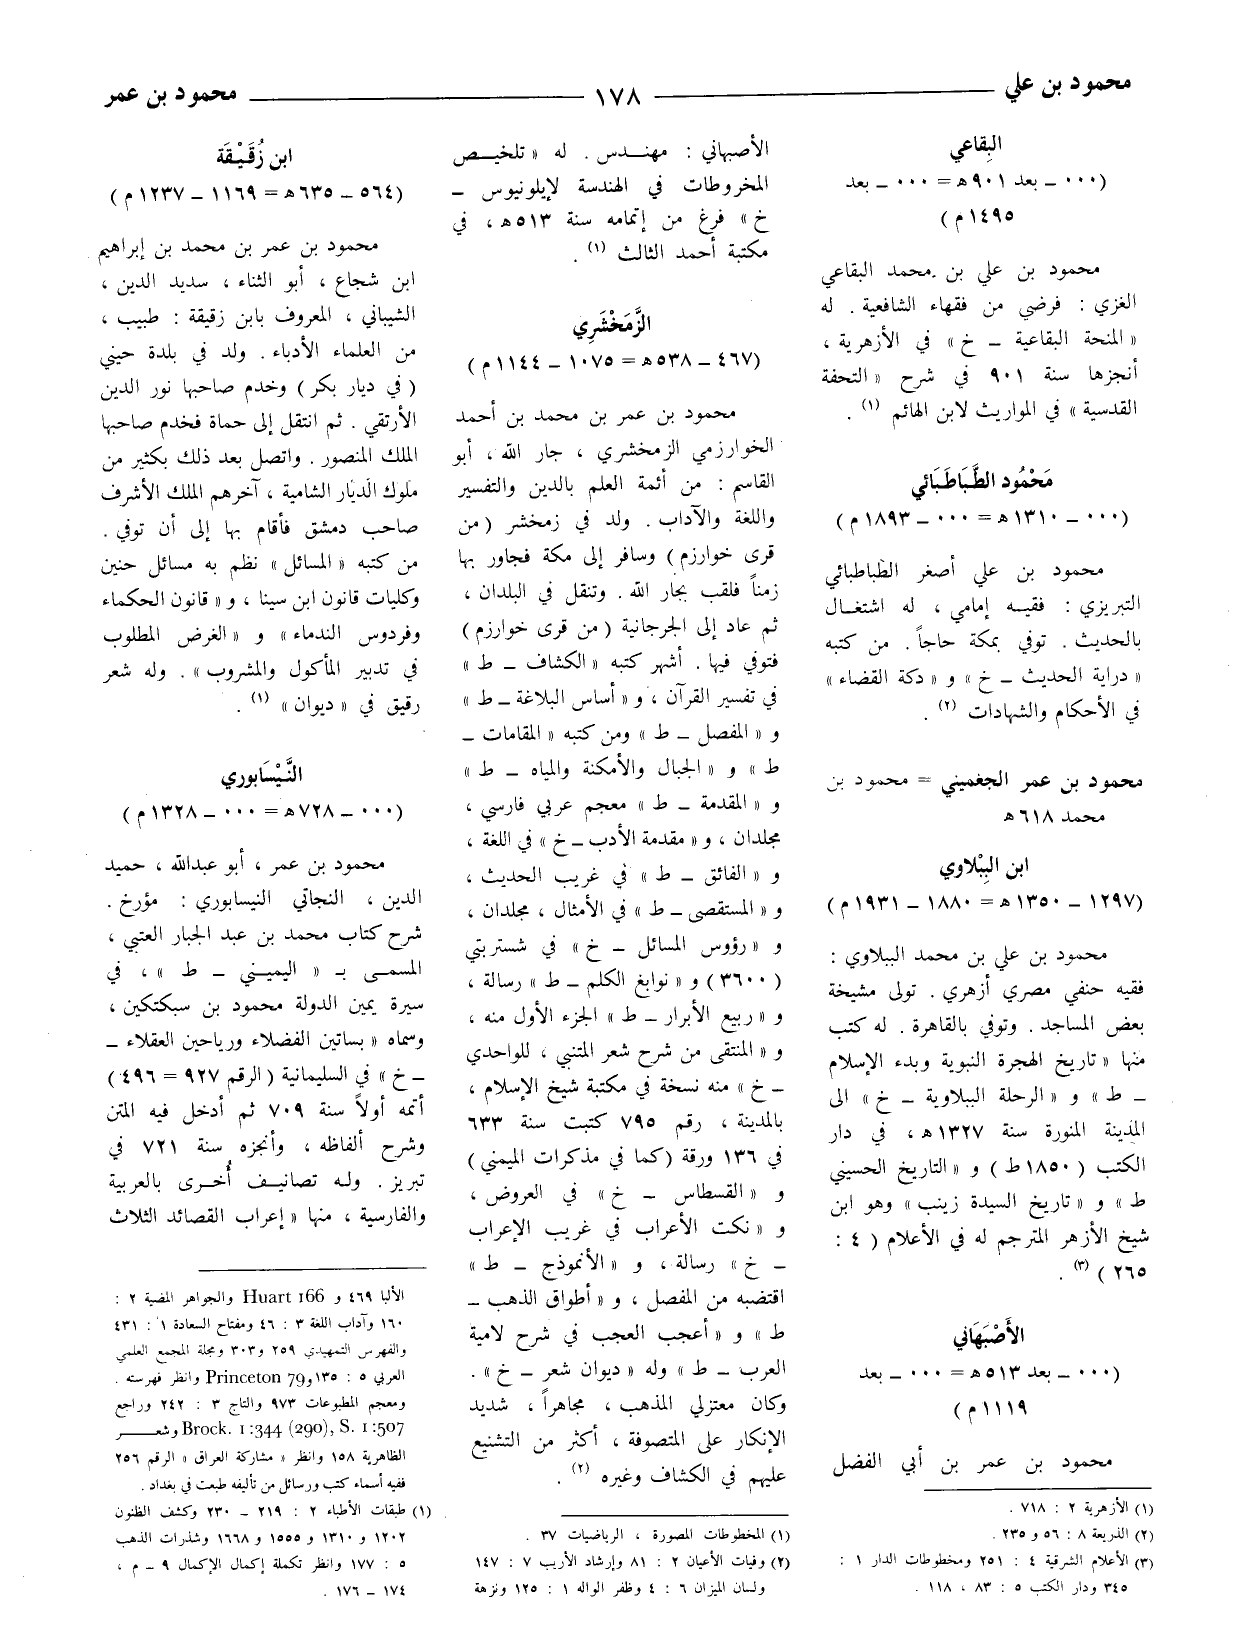 محمود بن علي ــــــ ١٧٨ ــــــ محمود بن عمر
البِقاعي
(٠٠٠ ــ بعد ٩٠١ هـ = ٠٠٠ ــ بعد
١٤٩٥ م)
محمود بن علي بن محمد البقاعي
الغزي : فرضي من فقهاء الشافعية . له
« المنحة البقاعية ــ خ » في الأزهرية ،
أنجزها سنة ٩٠١ في شرح « التحفة
القدسية » في المواريث لابن الهائم (١) .
مَحْمُود الطَّبَاطَبَائي
(٠٠٠ ــ ١٣١٠ هـ = ٠٠٠ ــ ١٨٩٣ م)
محمود بن علي أصغر الطباطبائي
التبريزي : فقيه إمامي ، له اشتغال
بالحديث . توفي بمكة حاجاً . من كتبه
« دراية الحديث ــ خ » و « دكة القضاء »
في الأحكام والشهادات (٢) .
محمود بن عمر الجغميني = محمود بن
محمد ٦١٨ هـ
ابن البِبْلاوي
(١٢٩٧ ــ ١٣٥٠ هـ = ١٨٨٠ ــ ١٩٣١ م)
محمود بن علي بن محمد الببلاوي :
فقيه حنفي مصري أزهري . تولى مشيخة
بعض المساجد . وتوفي بالقاهرة . له كتب
منها « تاريخ الهجرة النبوية وبدء الإسلام
ــ ط » و « الرحلة الببلاوية ــ خ » الى
المدينة المنورة سنة ١٣٢٧ هـ ، في دار
الكتب ( ١٨٥٠ ط ) و « التاريخ الحسيني
ط » و « تاريخ السيدة زينب » وهو ابن
شيخ الأزهر المترجم له في الأعلام ( ٤ :
٢٦٥ ) (٣) .
الأَصْبَهَاني
(٠٠٠ ــ بعد ٥١٣ هـ = ٠٠٠ ــ بعد
١١١٩ م)
محمود بن عمر بن أبي الفضل
(١) الأزهرية ٢ : ٧١٨ .
(٢) الذريعة ٨ : ٥٦ و ٢٣٥ .
(٣) الأعلام الشرقية ٤ : ٢٥١ ومخطوطات الدار ١ :
٣٤٥ ودار الكتب ٥ : ٨٣ ، ١١٨ .
الأصبهاني : مهندس . له « تلخيص
المخروطات في الهندسة لإيلونيوس ــ
خ » فرغ من إتمامه سنة ٥١٣ هـ ، في
مكتبة أحمد الثالث (١) .
الزَّمَخْشَرِي
(٤٦٧ ــ ٥٣٨ هـ = ١٠٧٥ ــ ١١٤٤ م)
محمود بن عمر بن محمد بن أحمد
الخوارزمي الزمخشري ، جار الله ، أبو
القاسم : من أئمة العلم بالدين والتفسير
واللغة والآداب . ولد في زمخشر (من
قرى خوارزم ) وسافر إلى مكة فجاور بها
زمناً فلقب بجار الله . وتنقل في البلدان ،
ثم عاد إلى الجرجانية ( من قرى خوارزم )
فتوفي فيها . أشهر كتبه « الكشاف ــ ط »
في تفسير القرآن ، و « أساس البلاغة ــ ط »
و « المفصل ــ ط » ومن كتبه « المقامات ــ
ط » و « الجبال والأمكنة والمياه ــ ط »
و « المقدمة ــ ط » معجم عربي فارسي ،
مجلدان ، و « مقدمة الأدب ــ خ » في اللغة ،
و « الفائق ــ ط » في غريب الحديث ،
و « المستقصى ــ ط » في الأمثال ، مجلدان ،
و « رؤوس المسائل ــ خ » في شستربتي
( ٣٦٠٠ ) و « نوابغ الكلم ــ ط » رسالة ،
و « ربيع الأبرار ــ ط » الجزء الأول منه ،
و « المنتقى من شرح شعر المتنبي ، للواحدي
ــ خ » منه نسخة في مكتبة شيخ الإسلام ،
بالمدينة ، رقم ٧٩٥ كتبت سنة ٦٣٣
في ١٣٦ ورقة (كما في مذكرات الميمني )
و « القسطاس ــ خ » في العروض ،
و « نكت الأعراب في غريب الإعراب
ــ خ » رسالة ، و « الأنموذج ــ ط »
اقتضبه من المفصل ، و « أطواق الذهب ــ
ط » و « أعجب العجب في شرح لامية
العرب ــ ط » وله « ديوان شعر ــ خ » .
وكان معتزلي المذهب ، مجاهراً ، شديد
الإنكار على المتصوفة ، أكثر من التشنيع
عليهم في الكشاف وغيره (٢) .
(١) المخطوطات المصورة ، الرياضيات ٣٧ .
(٢) وفيات الأعيان ٢ : ٨١ وإرشاد الأريب ٧ : ١٤٧
ولسان الميزان ٦ : ٤ وظفر الواله ١ : ١٢٥ ونزهة
ابن زُقَيْقَة
(٥٦٤ ــ ٦٣٥ هـ = ١١٦٩ ــ ١٢٣٧ م)
محمود بن عمر بن محمد بن إبراهيم
ابن شجاع ، أبو الثناء ، سديد الدين ،
الشيباني ، المعروف بابن زقيقة : طبيب ،
من العلماء الأدباء . ولد في بلدة حيني
( في ديار بكر ) وخدم صاحبها نور الدين
الأرتقي . ثم انتقل إلى حماة فخدم صاحبها
الملك المنصور . واتصل بعد ذلك بكثير من
ملوك الديار الشامية ، آخرهم الملك الأشرف
صاحب دمشق فأقام بها إلى أن توفي .
من كتبه « المسائل » نظم به مسائل حنين
وكليات قانون ابن سينا ، و « قانون الحكماء
وفردوس الندماء » و « الغرض المطلوب
في تدبير المأكول والمشروب » . وله شعر
رقيق في « ديوان » (١) .
النَّيْسَابوري
(٠٠٠ ــ ٧٢٨ هـ = ٠٠٠ ــ ١٣٢٨ م)
محمود بن عمر ، أبو عبدالله ، حميد
الدين ، النجاتي النيسابوري : مؤرخ .
شرح كتاب محمد بن عبد الجبار العتبي ،
المسمى بـ « اليميني ــ ط » ، في
سيرة يمين الدولة محمود بن سبكتكين ،
وسماه « بساتين الفضلاء ورياحين العقلاء ــ
ــ خ » في السليمانية ( الرقم ٩٢٧ = ٤٩٦ )
أتمه أولاً سنة ٧٠٩ ثم أدخل فيه المتن
وشرح ألفاظه ، وأنجزه سنة ٧٢١ في
تبريز . وله تصانيف أُخرى بالعربية
والفارسية ، منها « إعراب القصائد الثلاث
الألبا ٤٦٩ و Huart 166 والجواهر المضية ٢ :
١٦٠ وآداب اللغة ٣ : ٤٦ ومفتاح السعادة ١ : ٤٣١
والفهرس التمهيدي ٢٥٩ و٣٠٣ ومجلة المجمع العلمي
العربي ٥ : ١٣٥ و Princeton 79 وانظر فهرسته .
ومعجم المطبوعات ٩٧٣ والتاج ٣ : ٢٤٢ وراجع
Brock. 1:344 (290), S. 1:507 وشعر
الظاهرية ١٥٨ وانظر « مشاركة العراق » الرقم ٢٥٦
ففيه أسماء كتب ورسائل من تأليفه طبعت في بغداد .
(١) طبقات الأطباء ٢ : ٢١٩ ــ ٢٣٠ وكشف الظنون
١٢٠٢ و ١٣١٠ و ١٥٥٥ و ١٦٦٨ وشذرات الذهب
٥ : ١٧٧ وانظر تكملة إكمال الإكمال ٩ ــ م ،
١٧٤ ــ ١٧٦ .